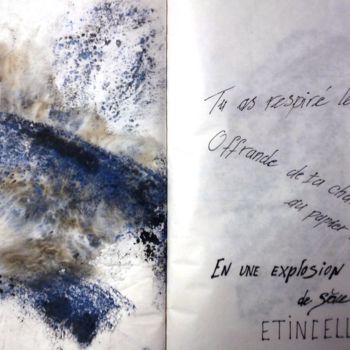 Tu as respiré le
Offrande de ta cha
au papier
En une explosion
de
ETINCELL